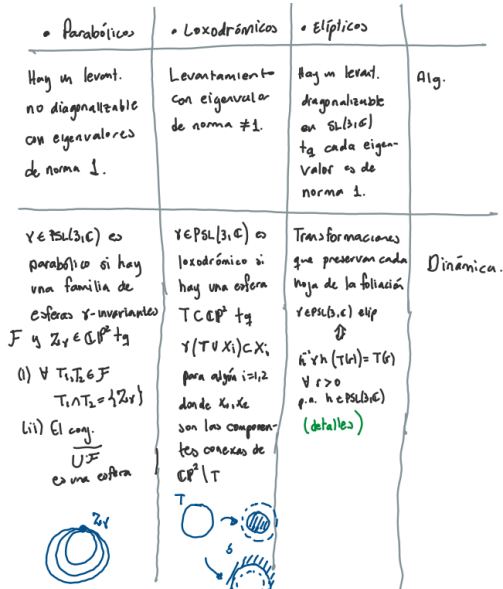 • Parabólicos
Hay un levant.
no diagonalizable
con eigenvalores
de norma 1.
• Loxodrómicos
Levantamiento
con eigenvalor
de norma ≠1.
• Elípticos
Hay un levant.
diagonalizable
en SL(3,ℂ)
tq cada eigen-
valor es de
norma 1.
Alg.
γ∈PSL(3,ℂ) es
parabólico si hay
una familia de
esferas γ-invariantes
F y Zγ∈ℂP² tq
(i) ∀ T₁,T₂∈F
T₁∩T₂={Zγ}
(ii) El conj.
U F
es una esfera
Zγ
γ∈PSL(3,ℂ) es
loxodrómico si
hay una esfera
T⊂ℂP² tq
γ(T∪Xi)⊂Xi
para algún i=1,2
donde X₁,X₂
son las componen-
tes conexas de
ℂP²\T
T
ó
Transformaciones
que preservan cada
hoja de la foliación
γ∈PSL(3,ℂ) elip
⇕
h⁻¹γh(T(r))=T(r)
∀ r>0
p.a. h∈PSL(3,ℂ)
(detalles)
Dinámica.